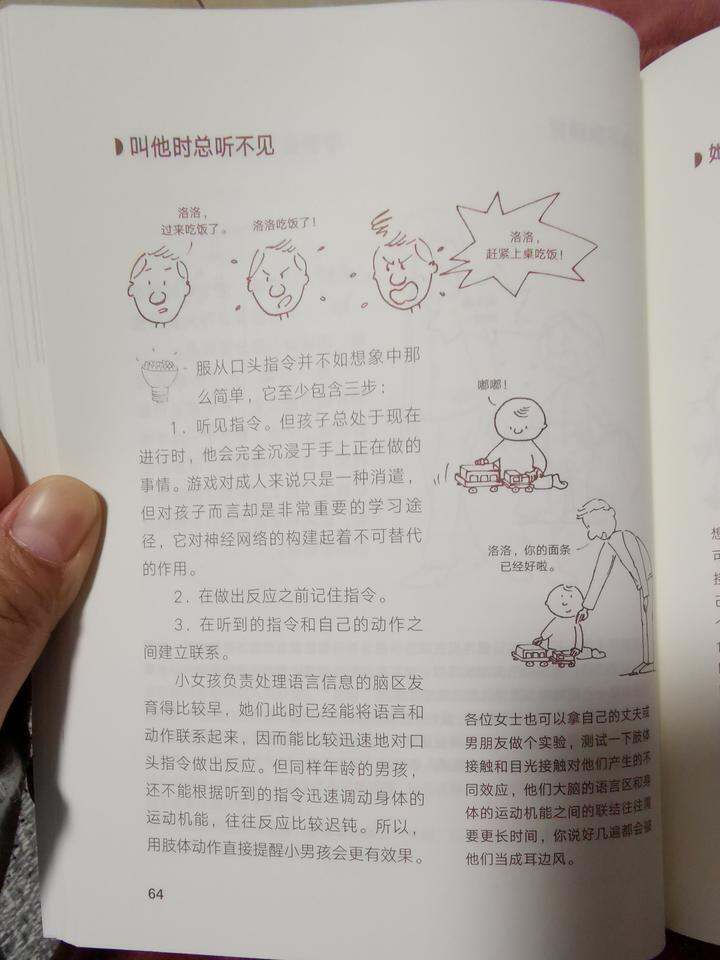 叫他时总听不见
洛洛，
过来吃饭了。
洛洛吃饭了！
洛洛，
赶紧上桌吃饭！
服从口头指令并不如想象中那
么简单，它至少包含三步：
1. 听见指令。但孩子总处于现在
进行时，他会完全沉浸于手上正在做的
事情。游戏对成人来说只是一种消遣，
但对孩子而言却是非常重要的学习途
径，它对神经网络的构建起着不可替代
的作用。
2. 在做出反应之前记住指令。
3. 在听到的指令和自己的动作之
间建立联系。
小女孩负责处理语言信息的脑区发
育得比较早，她们此时已经能将语言和
动作联系起来，因而能比较迅速地对口
头指令做出反应。但同样年龄的男孩，
还不能根据听到的指令迅速调动身体的
运动机能，往往反应比较迟钝。所以，
用肢体动作直接提醒小男孩会更有效果。
嘟嘟！
洛洛，你的面条
已经好啦。
各位女士也可以拿自己的丈夫或
男朋友做个实验，测试一下肢体
接触和目光接触对他们产生的不
同效应，他们大脑的语言区和身
体的运动机能之间的联结往往需
要更长时间，你说好几遍都会被
他们当成耳边风。
64